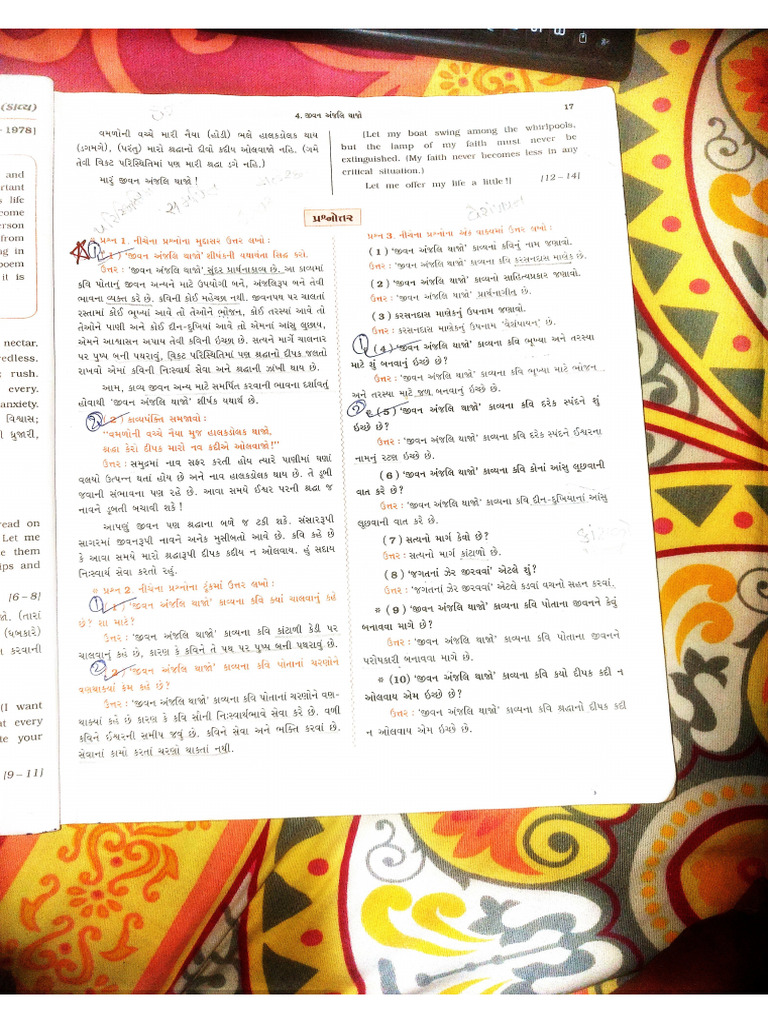 (કાવ્ય)
- 1978]
and
rtant
s life
come
erson
from
ng in
poem
it is
nectar.
redless.
rush.
every.
anxiety.
વિશ્વાસ;
ધ્રુજારી,
read on
Let me
e them
ips and
[6 – 8]
જો. (તારાં
(ધબકારે)
કરવાની
(I want
at every
te your
[9 – 11]
4. જીવન અંજલિ થાજો
17
વમળોની વચ્ચે મારી નૈયા (હોડી) ભલે હાલકડોલક થાય
(ડગમગે), (પરંતુ) મારો શ્રદ્ધાનો દીવો કદીય ઓલવાજો નહિ. (ગમે
તેવી વિકટ પરિસ્થિતિમાં પણ મારી શ્રદ્ધા ડગે નહિ.)
મારું જીવન અંજલિ થાજો !
(Let my boat swing among the whirlpools,
but the lamp of my faith must never be
extinguished. (My faith never becomes less in any
critical situation.)
Let me offer my life a little!]
[12 – 14]
પ્રશ્નોત્તર
* પ્રશ્ન 1. નીચેના પ્રશ્નોના મુદ્દાસર ઉત્તર લખો :
(1) 'જીવન અંજલિ થાજો' શીર્ષકની યથાર્થતા સિદ્ધ કરો.
ઉત્તર : 'જીવન અંજલિ થાજો' સુંદર પ્રાર્થનાકાવ્ય છે. આ કાવ્યમાં
કવિ પોતાનું જીવન અન્યને માટે ઉપયોગી બને, અંજલિરૂપ બને તેવી
ભાવના વ્યક્ત કરે છે. કવિની કોઈ મહેચ્છા નથી. જીવનપથ પર ચાલતાં
રસ્તામાં કોઈ ભૂખ્યાં આવે તો તેઓને ભોજન, કોઈ તરસ્યાં આવે તો
તેઓને પાણી અને કોઈ દીન-દુખિયાં આવે તો એમનાં આંસુ લુછાય,
એમને આશ્વાસન અપાય તેવી કવિની ઇચ્છા છે. સત્યને માર્ગે ચાલનાર
પર પુષ્પ બની પથરાવું, વિકટ પરિસ્થિતિમાં પણ શ્રદ્ધાનો દીપક જલતો
રાખવો એમાં કવિની નિઃસ્વાર્થ સેવા અને શ્રદ્ધાની ઝાંખી થાય છે.
આમ, કાવ્ય જીવન અન્ય માટે સમર્પિત કરવાની ભાવના દર્શાવતું
હોવાથી 'જીવન અંજલિ થાજો' શીર્ષક યથાર્થ છે.
(2) કાવ્યપંક્તિ સમજાવો :
"વમળોની વચ્ચે નૈયા મુજ હાલકડોલક થાજો,
શ્રદ્ધા કેરો દીપક મારો નવ કદીએ ઓલવાજો!"
ઉત્તર : સમુદ્રમાં નાવ સફર કરતી હોય ત્યારે પાણીમાં ઘણાં
વલયો ઉત્પન્ન થતાં હોય છે અને નાવ હાલકડોલક થાય છે. તે ડૂબી
જવાની સંભાવના પણ રહે છે. આવા સમયે ઈશ્વર પરની શ્રદ્ધા જ
નાવને ડૂબતી બચાવી શકે !
આપણું જીવન પણ શ્રદ્ધાના બળે જ ટકી શકે. સંસારરૂપી
સાગરમાં જીવનરૂપી નાવને અનેક મુસીબતો આવે છે. કવિ કહે છે
કે આવા સમયે મારો શ્રદ્ધારૂપી દીપક કદીય ન ઓલવાય. હું સદાય
નિઃસ્વાર્થ સેવા કરતો રહું.
* પ્રશ્ન 2. નીચેના પ્રશ્નોના ટૂંકમાં ઉત્તર લખો :
(1) 'જીવન અંજલિ થાજો' કાવ્યના કવિ ક્યાં ચાલવાનું કહે
છે? શા માટે?
ઉત્તર : 'જીવન અંજલિ થાજો' કાવ્યના કવિ કાંટાળી કેડી પર
ચાલવાનું કહે છે, કારણ કે કવિને તે પથ પર પુષ્પ બની પથરાવું છે.
(2) 'જીવન અંજલિ થાજો' કાવ્યના કવિ પોતાનાં ચરણોને
વણથાક્યાં કેમ કહે છે?
ઉત્તર : 'જીવન અંજલિ થાજો' કાવ્યના કવિ પોતાનાં ચરણોને વણ-
થાક્યાં કહે છે કારણ કે કવિ સૌની નિઃસ્વાર્થભાવે સેવા કરે છે. વળી
કવિને ઈશ્વરની સમીપ જવું છે. કવિને સેવા અને ભક્તિ કરવાં છે.
સેવાનાં કામો કરતાં ચરણો થાકતાં નથી.
પ્રશ્ન 3. નીચેના પ્રશ્નોના એક વાક્યમાં ઉત્તર લખો :
(1) 'જીવન અંજલિ થાજો' કાવ્યના કવિનું નામ જણાવો.
ઉત્તર : 'જીવન અંજલિ થાજો' કાવ્યના કવિ કરસનદાસ માણેક છે.
(2) 'જીવન અંજલિ થાજો' કાવ્યનો સાહિત્યપ્રકાર જણાવો.
ઉત્તર : 'જીવન અંજલિ થાજો' પ્રાર્થનાગીત છે.
(3) કરસનદાસ માણેકનું ઉપનામ જણાવો.
ઉત્તર : કરસનદાસ માણેકનું ઉપનામ 'વૈશંપાયન' છે.
(4) 'જીવન અંજલિ થાજો' કાવ્યના કવિ ભૂખ્યા અને તરસ્યા
માટે શું બનવાનું ઇચ્છે છે?
ઉત્તર : 'જીવન અંજલિ થાજો' કાવ્યના કવિ ભૂખ્યા માટે ભોજન
અને તરસ્યા માટે જળ બનવાનું ઇચ્છે છે.
(5) 'જીવન અંજલિ થાજો' કાવ્યના કવિ દરેક સ્પંદને શું
ઇચ્છે છે?
ઉત્તર : 'જીવન અંજલિ થાજો' કાવ્યના કવિ દરેક સ્પંદને ઈશ્વરના
નામનું રટણ ઇચ્છે છે.
(6) 'જીવન અંજલિ થાજો' કાવ્યના કવિ કોનાં આંસુ લૂછવાની
વાત કરે છે?
ઉત્તર : 'જીવન અંજલિ થાજો' કાવ્યના કવિ દીન-દુખિયાનાં આંસુ
લૂછવાની વાત કરે છે.
(7) સત્યનો માર્ગ કેવો છે?
ઉત્તર : સત્યનો માર્ગ કાંટાળો છે.
(8) 'જગતનાં ઝેર જીરવવાં' એટલે શું?
ઉત્તર : 'જગતનાં ઝેર જીરવવાં' એટલે કડવાં વચનો સહન કરવાં.
* (9) 'જીવન અંજલિ થાજો' કાવ્યના કવિ પોતાના જીવનને કેવું
બનાવવા માગે છે?
ઉત્તર : 'જીવન અંજલિ થાજો' કાવ્યના કવિ પોતાના જીવનને
પરોપકારી બનાવવા માગે છે.
* (10) 'જીવન અંજલિ થાજો' કાવ્યના કવિ કયો દીપક કદી ન
ઓલવાય એમ ઇચ્છે છે?
ઉત્તર : 'જીવન અંજલિ થાજો' કાવ્યના કવિ શ્રદ્ધાનો દીપક કદી
ન ઓલવાય એમ ઇચ્છે છે.